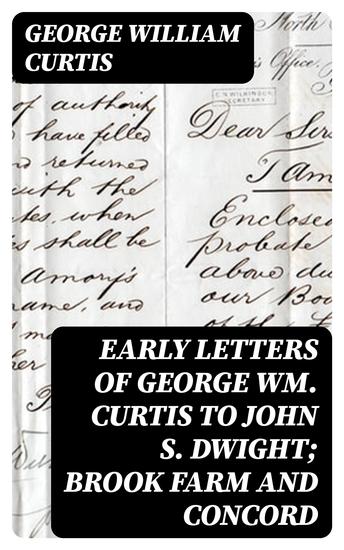 GEORGE WILLIAM
CURTIS
North
is Office.
C. N. WILKINSON,
SECRETARY
of authority
have filled
returned
with the
when
shall be
Amory's
name, and
Dear Sirs
I am
Enclosed
probate
above du
our Boo
EARLY LETTERS
OF GEORGE WM.
CURTIS TO JOHN
S. DWIGHT;
BROOK FARM AND
CONCORD